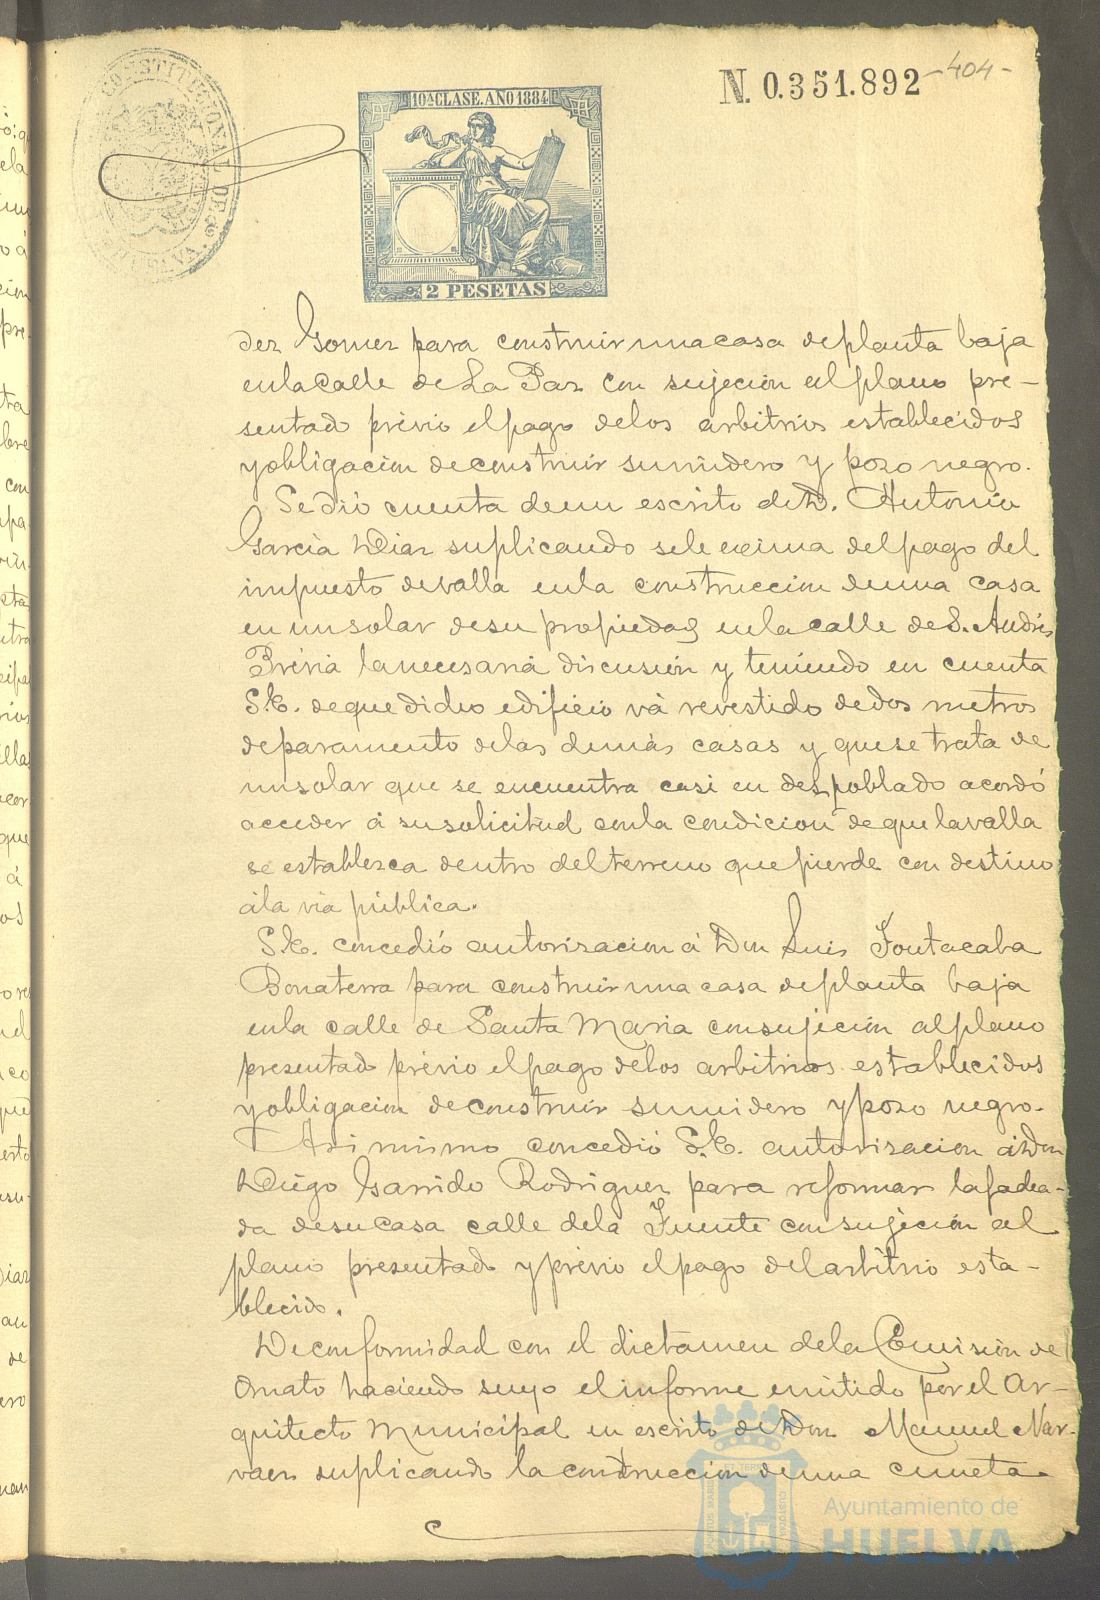 CONSTITUCIONAL DE
10ª CLASE. AÑO 1884
2 PESETAS
N. 0.351.892
-404-
dez Gomez para construir una casa de planta baja
en la calle de La Paz con sujecion al plano pre-
sentado prévio el pago de los arbitrios establecidos
y obligacion de construir sumidero y pozo negro.
Se dió cuenta de un escrito de D. Antonio
Garcia Diaz suplicando se le exima del pago del
impuesto de valla en la construccion de una casa
en un solar de su propiedad en la calle de S. Andrés
Prévia la necesaria discusión y teniendo en cuenta
S.E. de que dicho edificio vá revestido de dos metros
de paramento de las demás casas y que se trata de
un solar que se encuentra casi en despoblado acordó
acceder á su solicitud con la condicion de que la valla
se establezca dentro del terreno que pierde con destino
á la via pública.
S.E. concedió autorizacion á Don Luis Fontacaba
Bonaterra para construir una casa de planta baja
en la calle de Santa Maria con sujeción al plano
presentado prévio el pago de los arbitrios establecidos
y obligacion de construir sumidero y pozo negro.
Asi mismo concedió S.E. autorizacion á Don
Diego Garrido Rodriguez para reformar la facha-
da de su casa calle de la Fuente con sujeción al
plano presentado y prévio el pago del arbitrio esta-
blecido.
De conformidad con el dictamen de la Comisión de
Ornato haciendo suyo el informe emitido por el Ar-
quitecto Municipal en escrito de Don Manuel Nar-
vaez suplicando la construccion de una cuneta
Ayuntamiento de
HUELVA